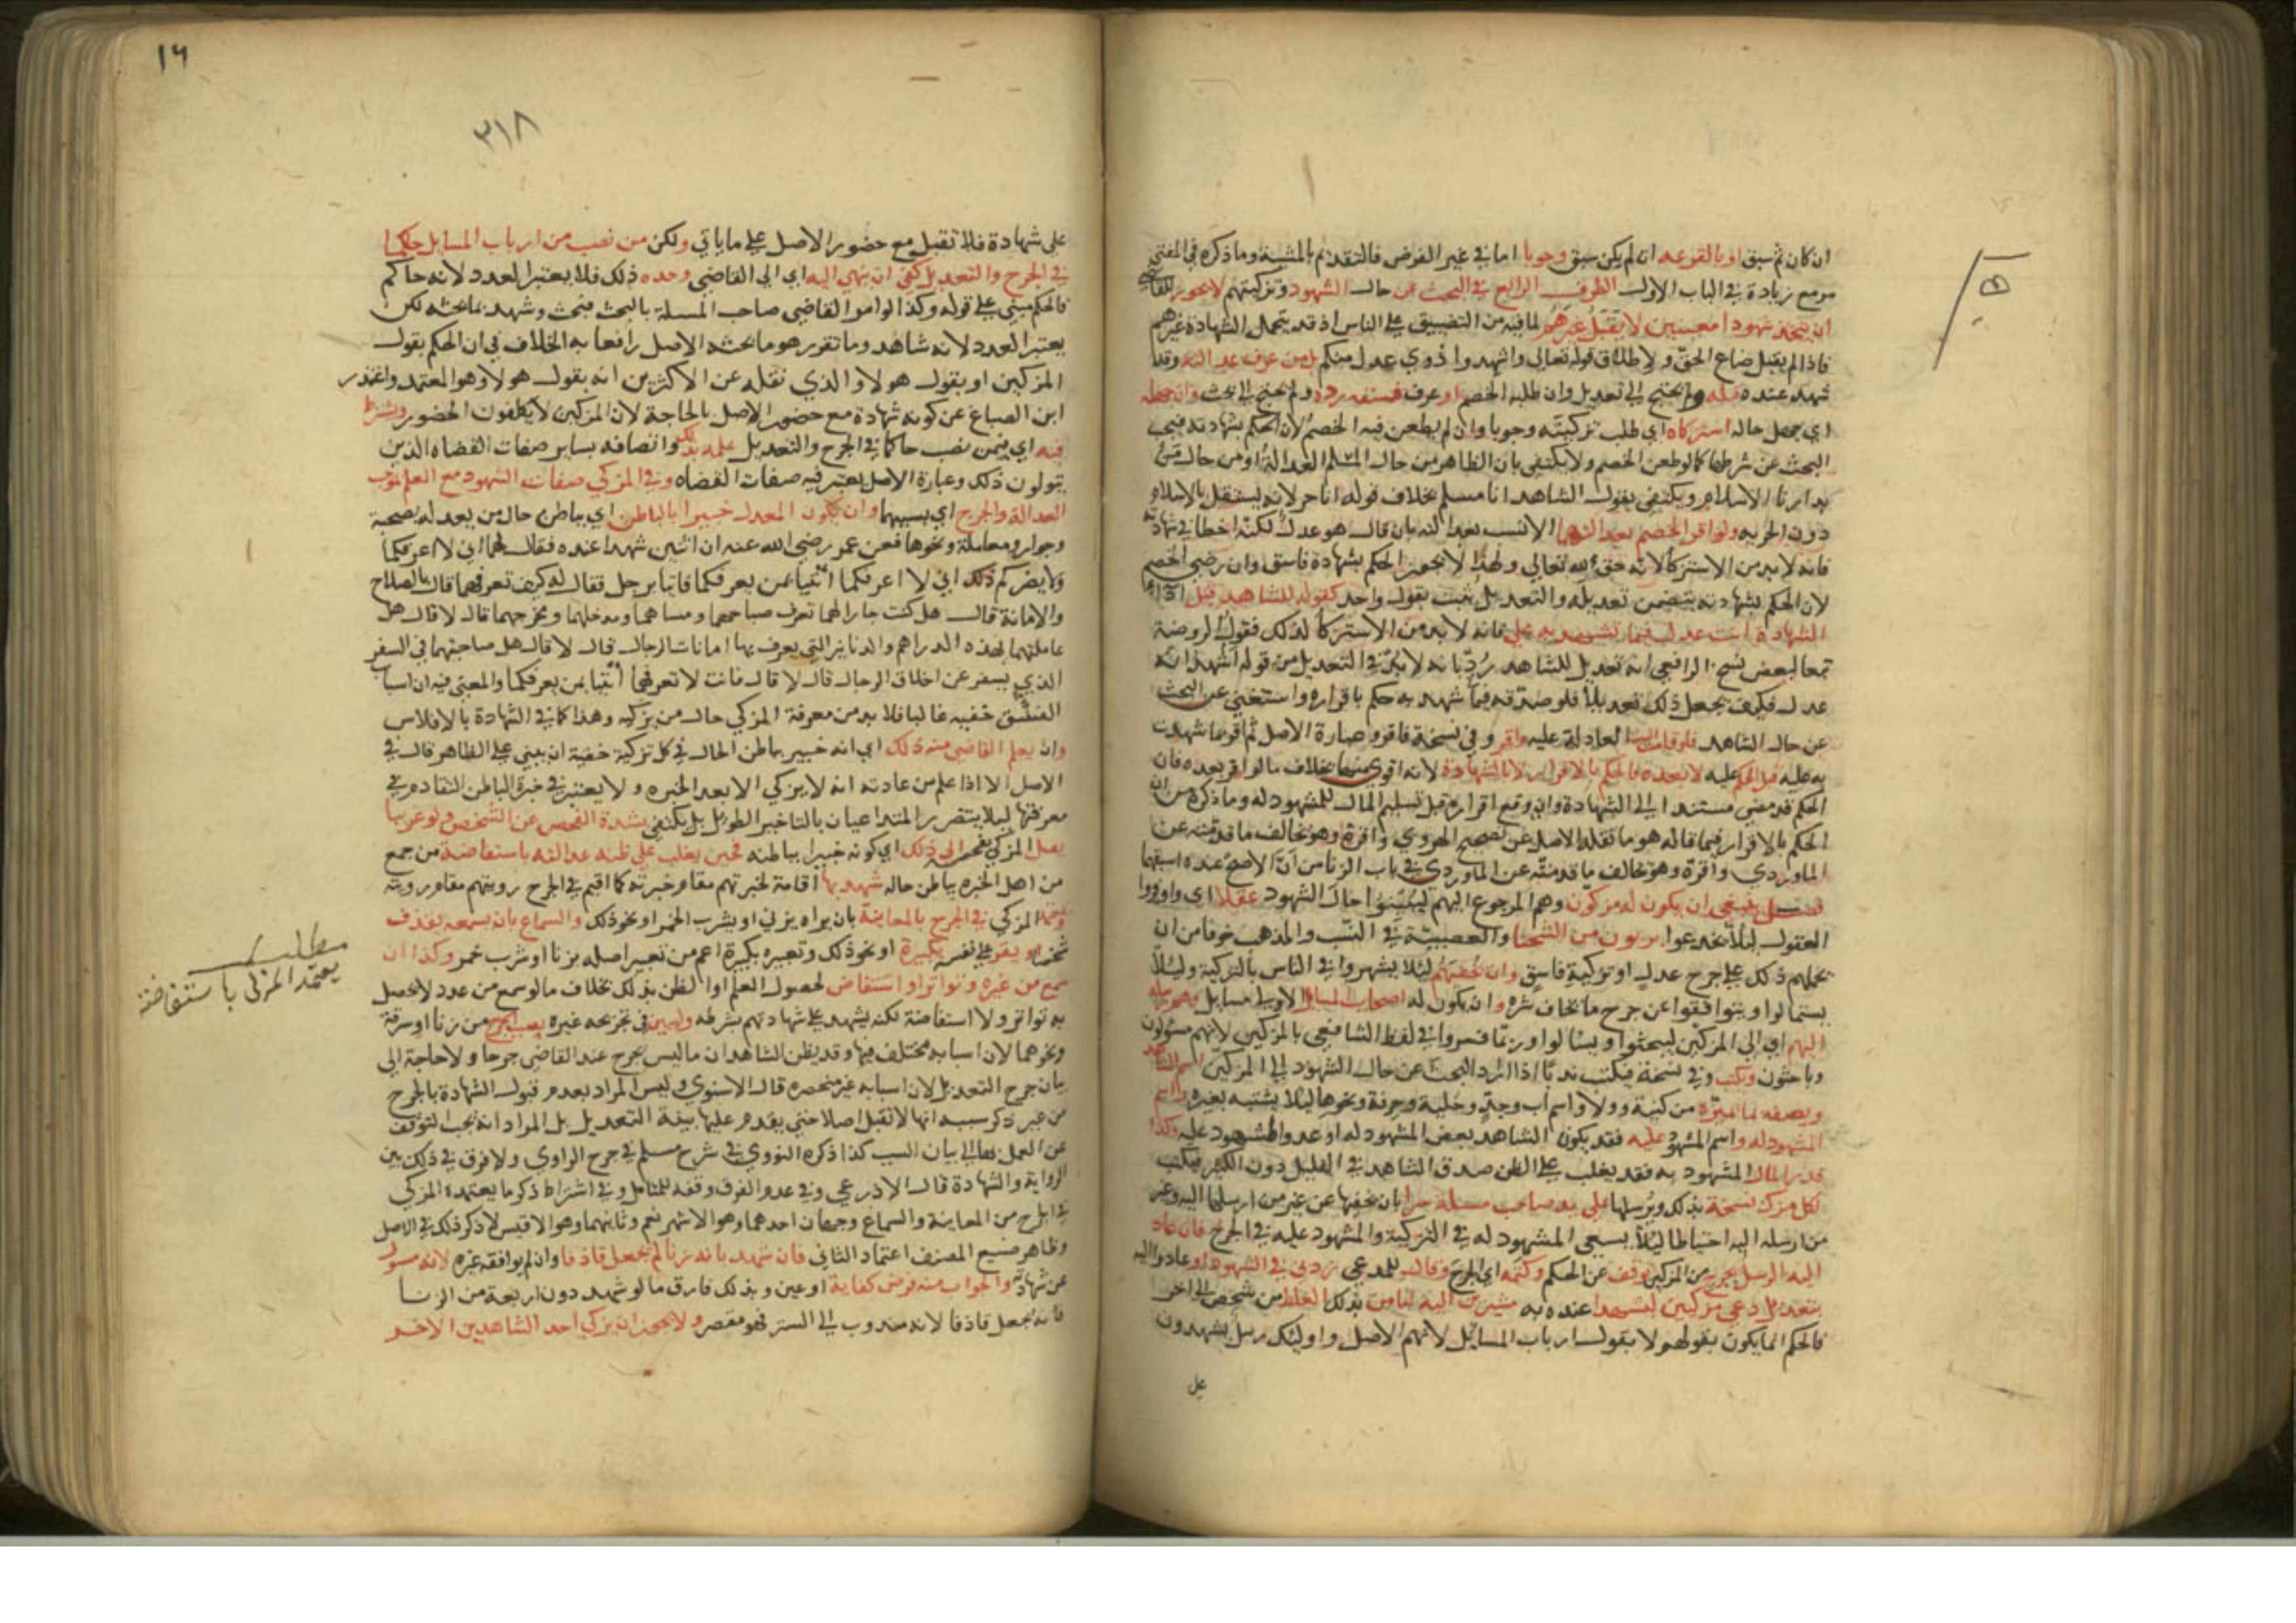 ان كان ثم سبق او بالقرعه ان لم يكن سبق وجوبا اما في غير الفرض فالتقديم بالمشيئة وما ذكره في المفتي
مع زيادة في الباب الاول الطرف الرابع في البحث عن حال الشهود وتزكيتهم لا يجوز للقاضي
ان يتخذ شهودا معينين لا يقبل غيرهم لما فيه من التضييق على الناس اذ قد يتحمل الشهادة غيرهم
فاذا لم يقبل ضاع الحق ولاطلاق قوله تعالى واشهدوا ذوي عدل منكم بل من عرف عدالته وقد
شهد عنده قبله ولم يحتج الى تعديل وان طلبه الخصم او عرف فسقه رده ولم يحتج الى بحث وان جهله
اي جهل حاله استزكاه اي طلب تزكيته وجوبا وان لم يطعن فيه الخصم لان الحكم بشهادته فيجب
البحث عن شرطها كما لو طعن الخصم ولا يكتفي بان الظاهر من حال المسلم العدالة او من حال من
بدارنا الاسلام ويكتفي بقول الشاهد انا مسلم بخلاف قوله انا حر لانه يستقل بالاسلام
دون الحريه ولو اقر الخصم بعدالتهما الانسب بعدالته بان قال هو عدل لكنه اخطا في شهادته
فانه لابد من الاستزكا لانه حق لله تعالى ولهذا لا يجوز الحكم بشهادة فاسق وان رضي الخصم
لان الحكم بشهادته يتضمن تعديله والتعديل لا يثبت بقول واحد كقوله للشاهد قبل اداء
الشهادة انت عدل فيما تشهد به علي فانه لابد من الاستزكا لذلك فقول الروضة
تبعا لبعض نسخ الرافعي انه تعديل للشاهد رد بانه لابد في التعديل من قوله اشهد انه
عدل فكيف يجعل ذلك تعديلا فلو صدقه فيما شهد به حكم باقراره واستغنى عن البحث
عن حال الشاهد فلو قامت البينة العادلة عليه واقر وفي نسخة فاقر وعبارة الاصل ثم اقر بما شهدت
به عليه قبل الحكم عليه لا بعده فالحكم بالاقرار لا بالشهادة لانه اقوى منها بخلاف ما لو اقر بعده فان
الحكم قد مضى مستندا الى الشهادة وان وقع اقراره قبل تسليم المال للمشهود له وما ذكره من ان
الحكم بالاقرار فيما قاله هو ما نقله الاصل عن تصحيح الهروي واقره وهو مخالف ما قدمته عن
الماوردي واقره وهو مخالف ما قدمته عن الماوردي في باب الزنا من ان الاصح عنده اسبقهما
فصل ينبغي ان يكون له مزكون وهم المرجوع اليهم ليبينوا حال الشهود عقلا اي وافروا
العقول لئلا يخدعوا بريون من الشحنا والعصبية في النسب والمذهب خوفا من ان
تحملهم ذلك على جرح عدل او تزكية فاسق وان يخفيهم لئلا يشهروا في الناس بالتزكية ولئلا
يستمالوا او يتوافقوا عن جرح ما يخاف شره وان يكون له اصحاب المسائل وهم رسله
اليهم اي الى المزكين ليبحثوا ويسالوا وربما فسروا في لفظ الشافعي بالمزكين لانهم مسؤلون
وباحثون ويكتب وفي نسخة فيكتب ندبا اذا اراد البحث عن حال الشهود الى المزكين اسم الشاهد
ويصفه بما يميزه من كنية وولا واسم اب وجد وحلية وحرفة ونحوها لئلا يشتبه بغيره واسم
المشهود له واسم المشهود عليه فقد يكون الشاهد بعض المشهود له او عدو المشهود عليه وكذا
قدر المال المشهود به فقد يغلب على الظن صدق الشاهد في القليل دون الكثير فيكتب
لكل مزك نسخة بذلك ويرسلها على يد صاحب مسئلة سرا بان يخفيها عن غير من ارسلها اليه وغير
من ارسله اليه احتياطا لئلا يسعى المشهود له في التزكية والمشهود عليه في الجرح فان عاد
اليه الرسل بجرح من المزكين توقف عن الحكم وكتمه اي الجرح وقال للمدعي زدني في الشهود او عادوا اليه
بتعديل دعي مزكيين ليشهدا عنده به مشيرين اليه ليامن بذلك الغلط من شخص الى اخر
فالحكم انما يكون بقولهم لا بقول ارباب المسائل لانهم الاصل واولئك رسل يشهدون
على
١٦
٣١٨
على شهادة فلا تقبل مع حضور الاصل على ما ياتي ولكن من نصب من ارباب المسايل حاكما
في الجرح والتعديل كفى ان ينهي اليه اي الى القاضي وحده ذلك فلا يعتبر العدد لانه حاكم
فالحكم مبني على قوله وكذا لو امر القاضي صاحب المسئلة بالبحث فبحث وشهد بما بحثه لكن
يعتبر العدد لانه شاهد وما تقرر هو ما بحثه الاصل رافعا به الخلاف في ان الحكم بقول
المزكين او بقول هولا والذي نقله عن الاكثرين انه بقول هولا وهو المعتمد واعتذر
ابن الصباغ عن كونه شهادة مع حضور الاصل بالحاجة لان المزكين لا يكلفون الحضور ويشترط
فيه اي فيمن نصب حاكما في الجرح والتعديل علمه بذلك واتصافه بساير صفات القضاه الذين
يتولون ذلك وعبارة الاصل يعتبر فيه صفات القضاه وفي المزكي صفات الشهود مع العلم بموجب
العدالة والجرح اي بسببهما وان يكون المعدل خبيرا بالباطن اي بباطن حال من يعدله بصحبة
وجوار ومعاملة ونحوها فعن عمر رضي الله عنه ان اثنين شهدا عنده فقال لهما اني لا اعرفكما
ولا يضركم ذلك اني لا اعرفكما ائتيا بمن يعرفكما فاتيا برجل فقال له كيف تعرفهما قال بالصلاح
والامانة قال هل كنت جارا لهما تعرف صباحهما ومساهما ومدخلهما ومخرجهما قال لا قال هل
عاملتهما بهذه الدراهم والدنانير التي يعرف بها امانات الرجال قال لا قال هل صاحبتهما في السفر
الذي يسفر عن اخلاق الرجال قال لا قال فانت لا تعرفهما ائتيا بمن يعرفكما والمعنى فيه ان اسباب
الفسق خفيه غالبا فلا بد من معرفة المزكي حال من يزكيه وهذا كما في الشهادة بالافلاس
وان يعلم القاضي منه ذلك اي انه خبير بباطن الحال في كل تزكية خفية ان يبني على الظاهر قال في
الاصل الا اذا علم من عادته انه لا يزكي الا بعد الخبره ولا يعتبر في خبرة الباطن التقادم في
معرفتها لئلا يتضرر المتداعيان بالتاخير الطويل بل يكتفي بشدة الفحص عن الشخص ولو غريبا
يصل المزكي بفحصه الى ذلك اي كونه خبيرا بباطنه فحين يغلب على ظنه عدالته باستفاضة من جمع
من اهل الخبره بباطن حاله شهد بها اقامة لخبرتهم مقام خبرته كما اقيم في الجرح رويتهم مقام رويته
ويعتمد المزكي في الجرح بالمعاينة بان يراه يزني او يشرب الخمر او نحو ذلك والسماع بان يسمعه يقذف
شخصا او يقر على نفسه بكبيرة او نحو ذلك وتعبيره بكبيرة اعم من تعبير اصله بزنا او شرب خمر وكذا ان
سمع من غيره وتواتر او استفاض لحصول العلم او الظن بذلك بخلاف ما لو سمع من عدد لا يحصل
به تواتر ولا استفاضة لكنه يشهد على شهادتهم بشرطه وليبين في تجريحه غيره سبب الجرح من زنا او سرقة
ونحوهما لان اسبابه مختلف فيها وقد يظن الشاهدان ما ليس بجرح عند القاضي جرحا ولا حاجة الى
بيان جرح التعديل لان اسبابه غير منحصره قال الاسنوي وليس المراد بعدم قبول الشهادة بالجرح
من غير ذكر سببه انها لا تقبل اصلا حتى يقدم عليها بينة التعديل بل المراد انه يجب التوقف
عن العمل بها الى بيان السبب كذا ذكره النووي في شرح مسلم في جرح الراوي ولا فرق في ذلك بين
الرواية والشهادة قال الاذرعي وفي عدم الفرق وقفه للمتامل وفي اشتراط ذكر ما يعتمده المزكي
في الجرح من المعاينة والسماع وجهان احدهما وهو الاشهر نعم وثانيهما وهو الاقيس لا ذكر ذلك في الاصل
وظاهر صنيع المصنف اعتماد الثاني فان شهد بانه زنا لم يجعل قاذفا وان لم يوافقه غيره لانه مسؤل
عن شهادته والجواب منه فرض كفاية او عين وبذلك فارق ما لو شهد دون اربعة من الزنا
فانه يجعل قاذفا لانه مندوب الى الستر فهو مقصر ولا يجوز ان يزكي احد الشاهدين الاخر
مطلب
يعتمد المزكي باستفاضة